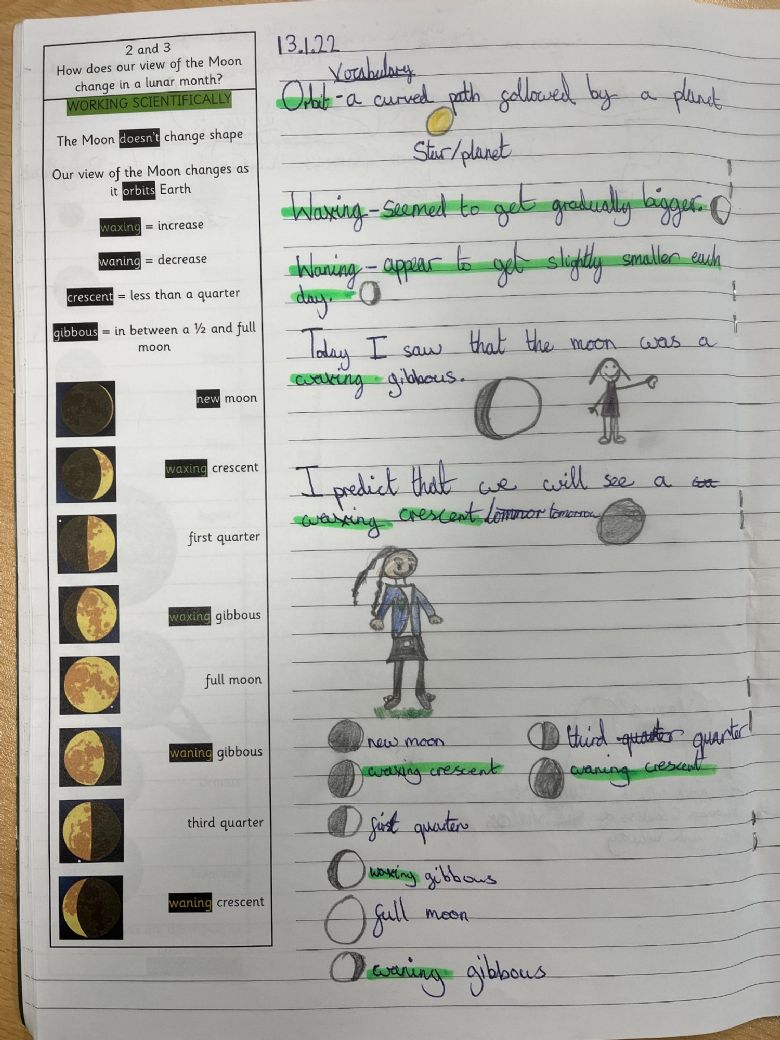 2 and 3
How does our view of the Moon
change in a lunar month?
WORKING SCIENTIFICALLY
The Moon doesn't change shape
Our view of the Moon changes as
it orbits Earth
waxing = increase
waning = decrease
crescent = less than a quarter
gibbous = in between a ½ and full
moon
new moon
waxing crescent
first quarter
waxing gibbous
full moon
waning gibbous
third quarter
waning crescent
13.1.22
Vocabulary
Orbit - a curved path followed by a planet
Star/planet
Waxing - seemed to get gradually bigger.
Waning - appear to get slightly smaller each
day.
Today I saw that the moon was a
waxing gibbous.
I predict that we will see a
waxing crescent tomorrow
new moon
waxing crescent
first quarter
waxing gibbous
full moon
waning gibbous
third quarter quarter
waning crescent